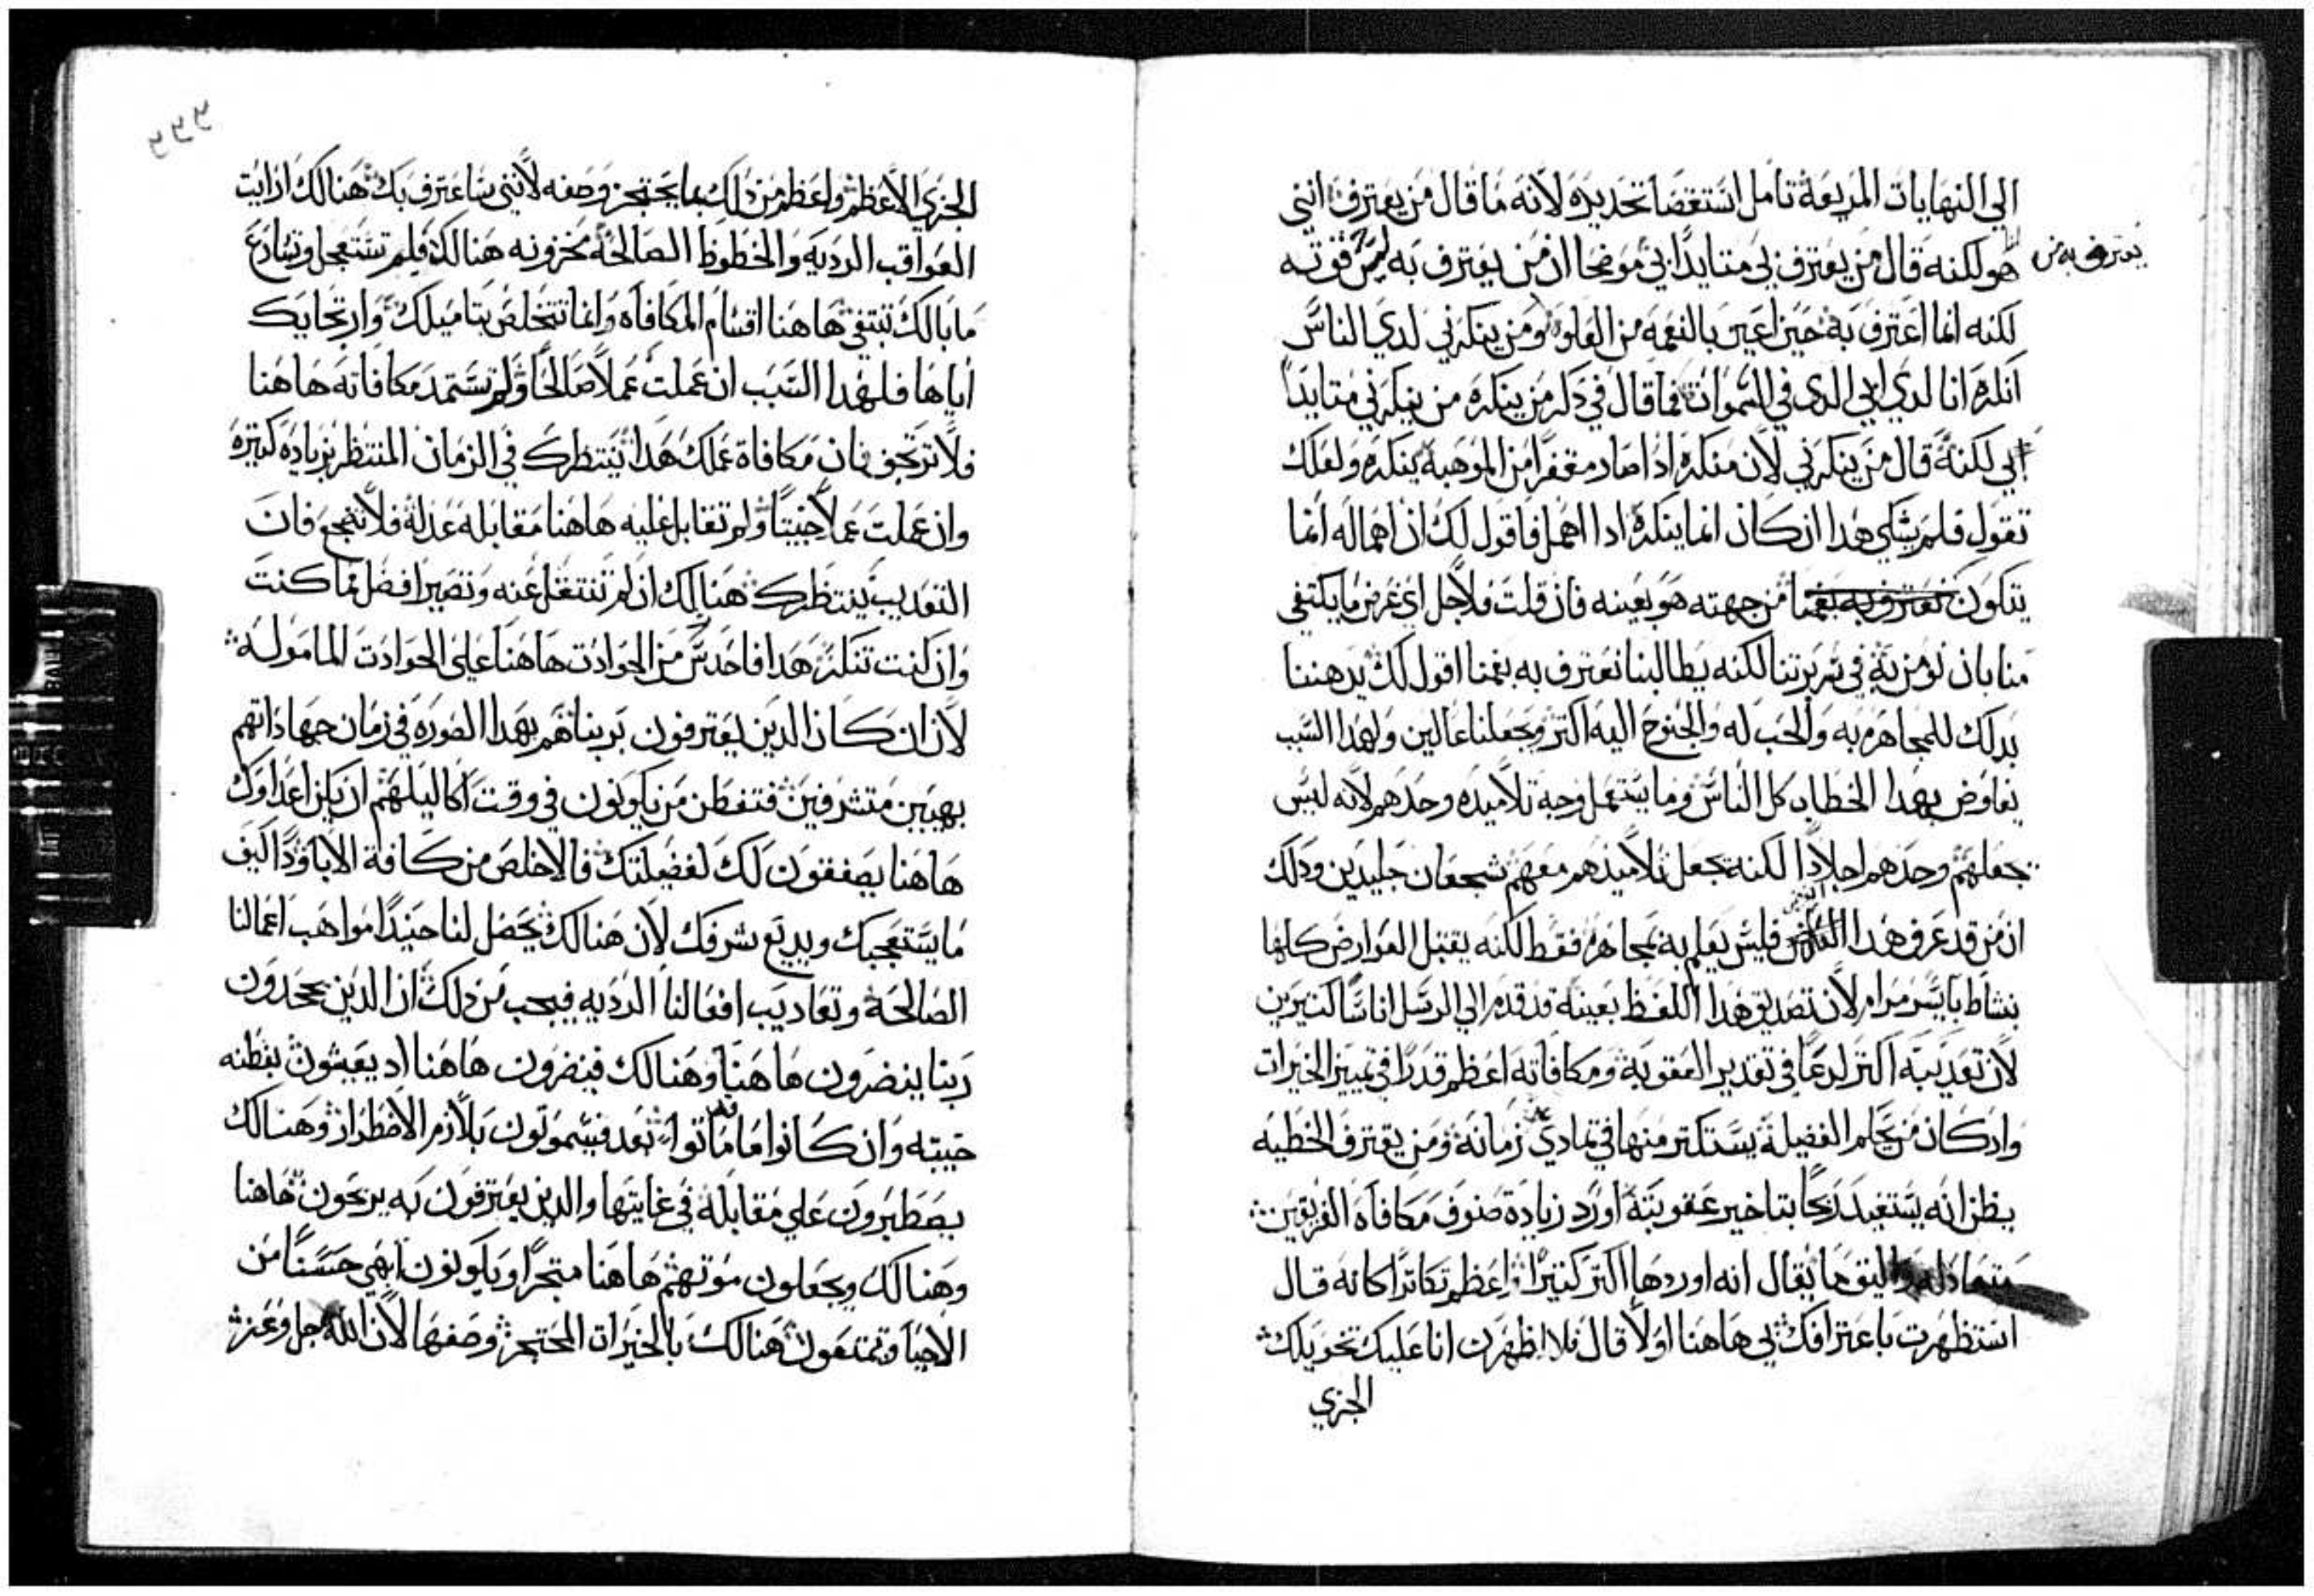 الي النهايات المريعة تامل استقصا تحديده لانه ما قال من يعترف انني
هو لكنه قال من يعترف بي متايدا بي موضحا ان من يعترف به ليس قوته
يعترف به من
لكنه انما اعترف به حين اعين بالنعمه من العلو ومن ينكرني لدي الناس
انكره انا لدي ابي الدي في السموات فما قال في دكر من ينكره من ينكرني متايدا
بي لكنه قال من ينكرني لان منكره ادا صار مقفرا من الموهبة ينكره ولعلك
تقول فلم يشكي هدا ان كان انما ينكره ادا اهمل فاقول لك ان اهماله انما
يتكون من جهته هو بعينه فان قلت فلاجل اي غرض ما يكتفي
منا بان نومن به في سريرتنا لكنه يطالبنا نعترف به بفمنا اقول لك يدهننا
بدلك للمجاهره به والحب له والجنوح اليه اكتر ويجعلنا عالين ولهدا السبب
يفاوض بهدا الخطاب كل الناس وما يستعمل وجه تلاميده وحدهم لانه ليس
يجعلهم وحدهم اجلادا لكنه يجعل تلاميذهم معهم شجعان جليدين ودلك
ان من قد عرف هدا فليس يعلم به بمجاهره فقط لكنه يقتبل العوارض كلها
بنشاط بايسر مرام لان تصديق هدا اللفظ بعينه قد قدم الي الرسل اناسا كتيرين
لان تعديبه اكتر لدعا في تقدير العقوبة ومكافاته اعظم قدرا في تمييز الخيرات
واد كان من يحكم الفضيلة يستكتر منها في تمادي زمانه ومن يقترف الخطيه
يظن انه يستفيد ربحا بتاخير عقوبته اورد زيادة صنوف مكافاه الفريقين
متعادله واليق ما يقال انه اوردها اكتر كتيرا واعظم تكاترا كانه قال
استظهرت باعترافك بي هاهنا اولا قال فلا اظهرن انا عليك بتخويلك
الجزي
٢٢٢
الجزي الاعظم واعظم من دلك بما يحتجز وصفه لانني ساعترف بك هنالك ارايت
العواقب الرديه والحظوظ الصالحة مخزونه هنالك فلم تستعجل وتسارع
ما بالك تبتغي هاهنا اقسام المكافاه وانما تتخلص بتاميلك وارتجايك
اياها فلهدا السبب ان عملت عملا صالحا ولم تستمد مكافاته هاهنا
فلا ترتجف فان مكافاة عملك هدا ينتظرك في الزمان المنتظر بزياده كتيره
وان عملت عملا خبيتا ولم تقابل عليه هاهنا مقابله عدله فلا تضجع فان
التعديب ينتظرك هنالك ان لم تنتقل عنه وتصير افضل مما كنت
وان كنت تنكر هدا فاحدس من الحوادت هاهنا علي الحوادت المامولة
لان ان كان الدين يعترفون بربنا هم بهدا الصوره في زمان جهاداتهم
بهيين متشرفين فتفطن من يكونون في وقت اكاليلهم ان يكن اعداوك
هاهنا يصفقون لك لفضيلتك فالاخلص من كافة الابا ودا كيف
ما يستعجبك ويديع شرفك لان هنالك يحصل لنا حينيدا مواهب اعمالنا
الصالحة وتعاديب افعالنا الرديه فيجب من دلك ان الدين يجحدون
ربنا ينضرون هاهنا وهنالك فينضرون هاهنا اد يعيشون بفطنه
خبيته وان كانوا ما ماتوا بعد فسيموتون بلازم الاضطرار وهنالك
يصطبرون علي مقابلة في غايتها والدين يعترفون به يربحون هاهنا
وهنالك ويجعلون موتهم هاهنا متجرا ويكونون ابهي حسنا من
الاحيا وتمتعون هنالك بالخيرات المحتجز وصفها لان الله جل وعز